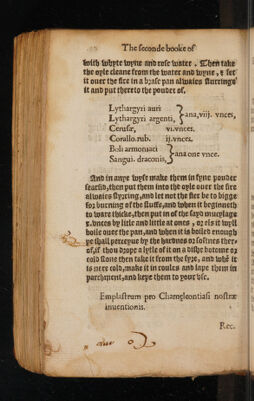 The seconde booke of
with whyte wyne and rose water. Then take
the oyle cleane from the water and wyne, & set
it ouer the fire in a brase pan alwaies sturringe
it and put thereto the pouder of.
Lythargyri auri
Lythargyri argenti, } ana, viij. vnces,
Cerusæ, vi. vnces.
Corallo. rub. ij. vnces.
Boli armoniaci
Sangui. draconis, } ana one vnce.
And in anye wyse make them in fyne pouder
searsid, then put them into the oyle ouer the fire
alwaies styrring, and let not the fier be to bigge
for burning of the stuffs, and when it beginneth
to ware thicke, then put in of the sayd mucylage
vnces by little and little at ones, or els it wyll
boile ouer the pan, and when it is boiled enough
ye shall perceyue by the hardnes or softnes there
of, if thou drope a lytle of it on a dishe botome or
cold stone then take it from the fyre, and whē it
is nere cold, make it in roules and lape them in
parchment, and kepe them to your vse.
Emplastrum pro Chamæleontiasi nostræ
inuentionis.
Rec.